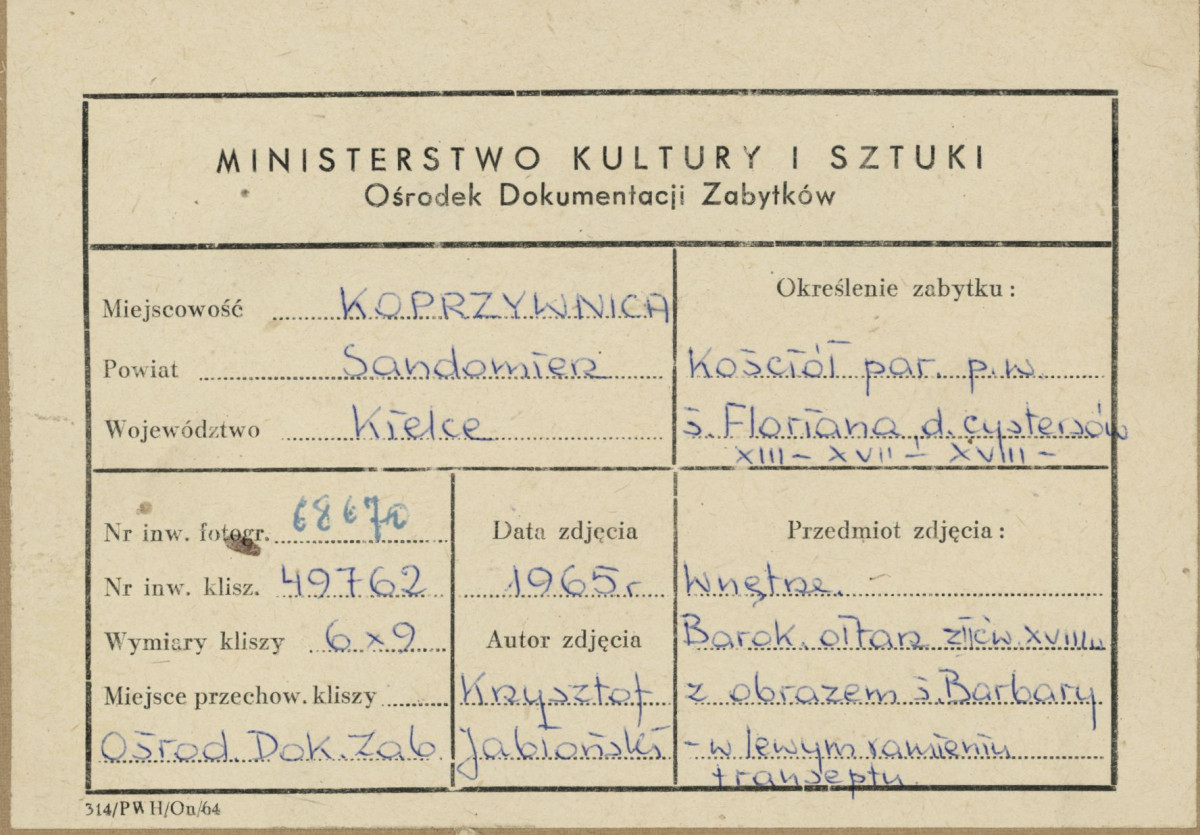 MINISTERSTWO KULTURY I SZTUKI
Ośrodek Dokumentacji Zabytków
Miejscowość KOPRZYWNICA
Powiat Sandomierz
Województwo Kielce
Określenie zabytku:
Kościół par. p.w.
ś. Floriana, d. cystersów
XIII – XVII – XVIII –
Nr inw. fotogr. 68670
Nr inw. klisz. 49762
Wymiary kliszy 6x9
Miejsce przechow. kliszy
Ośrod. Dok. Zab
Data zdjęcia
1965r
Autor zdjęcia
Krzysztof
Jabłoński
Przedmiot zdjęcia:
Wnętrze.
Barok. ołtarz XVIII w
z obrazem ś. Barbary
- w lewym ramieniu
transeptu.
314/PWH/On/64